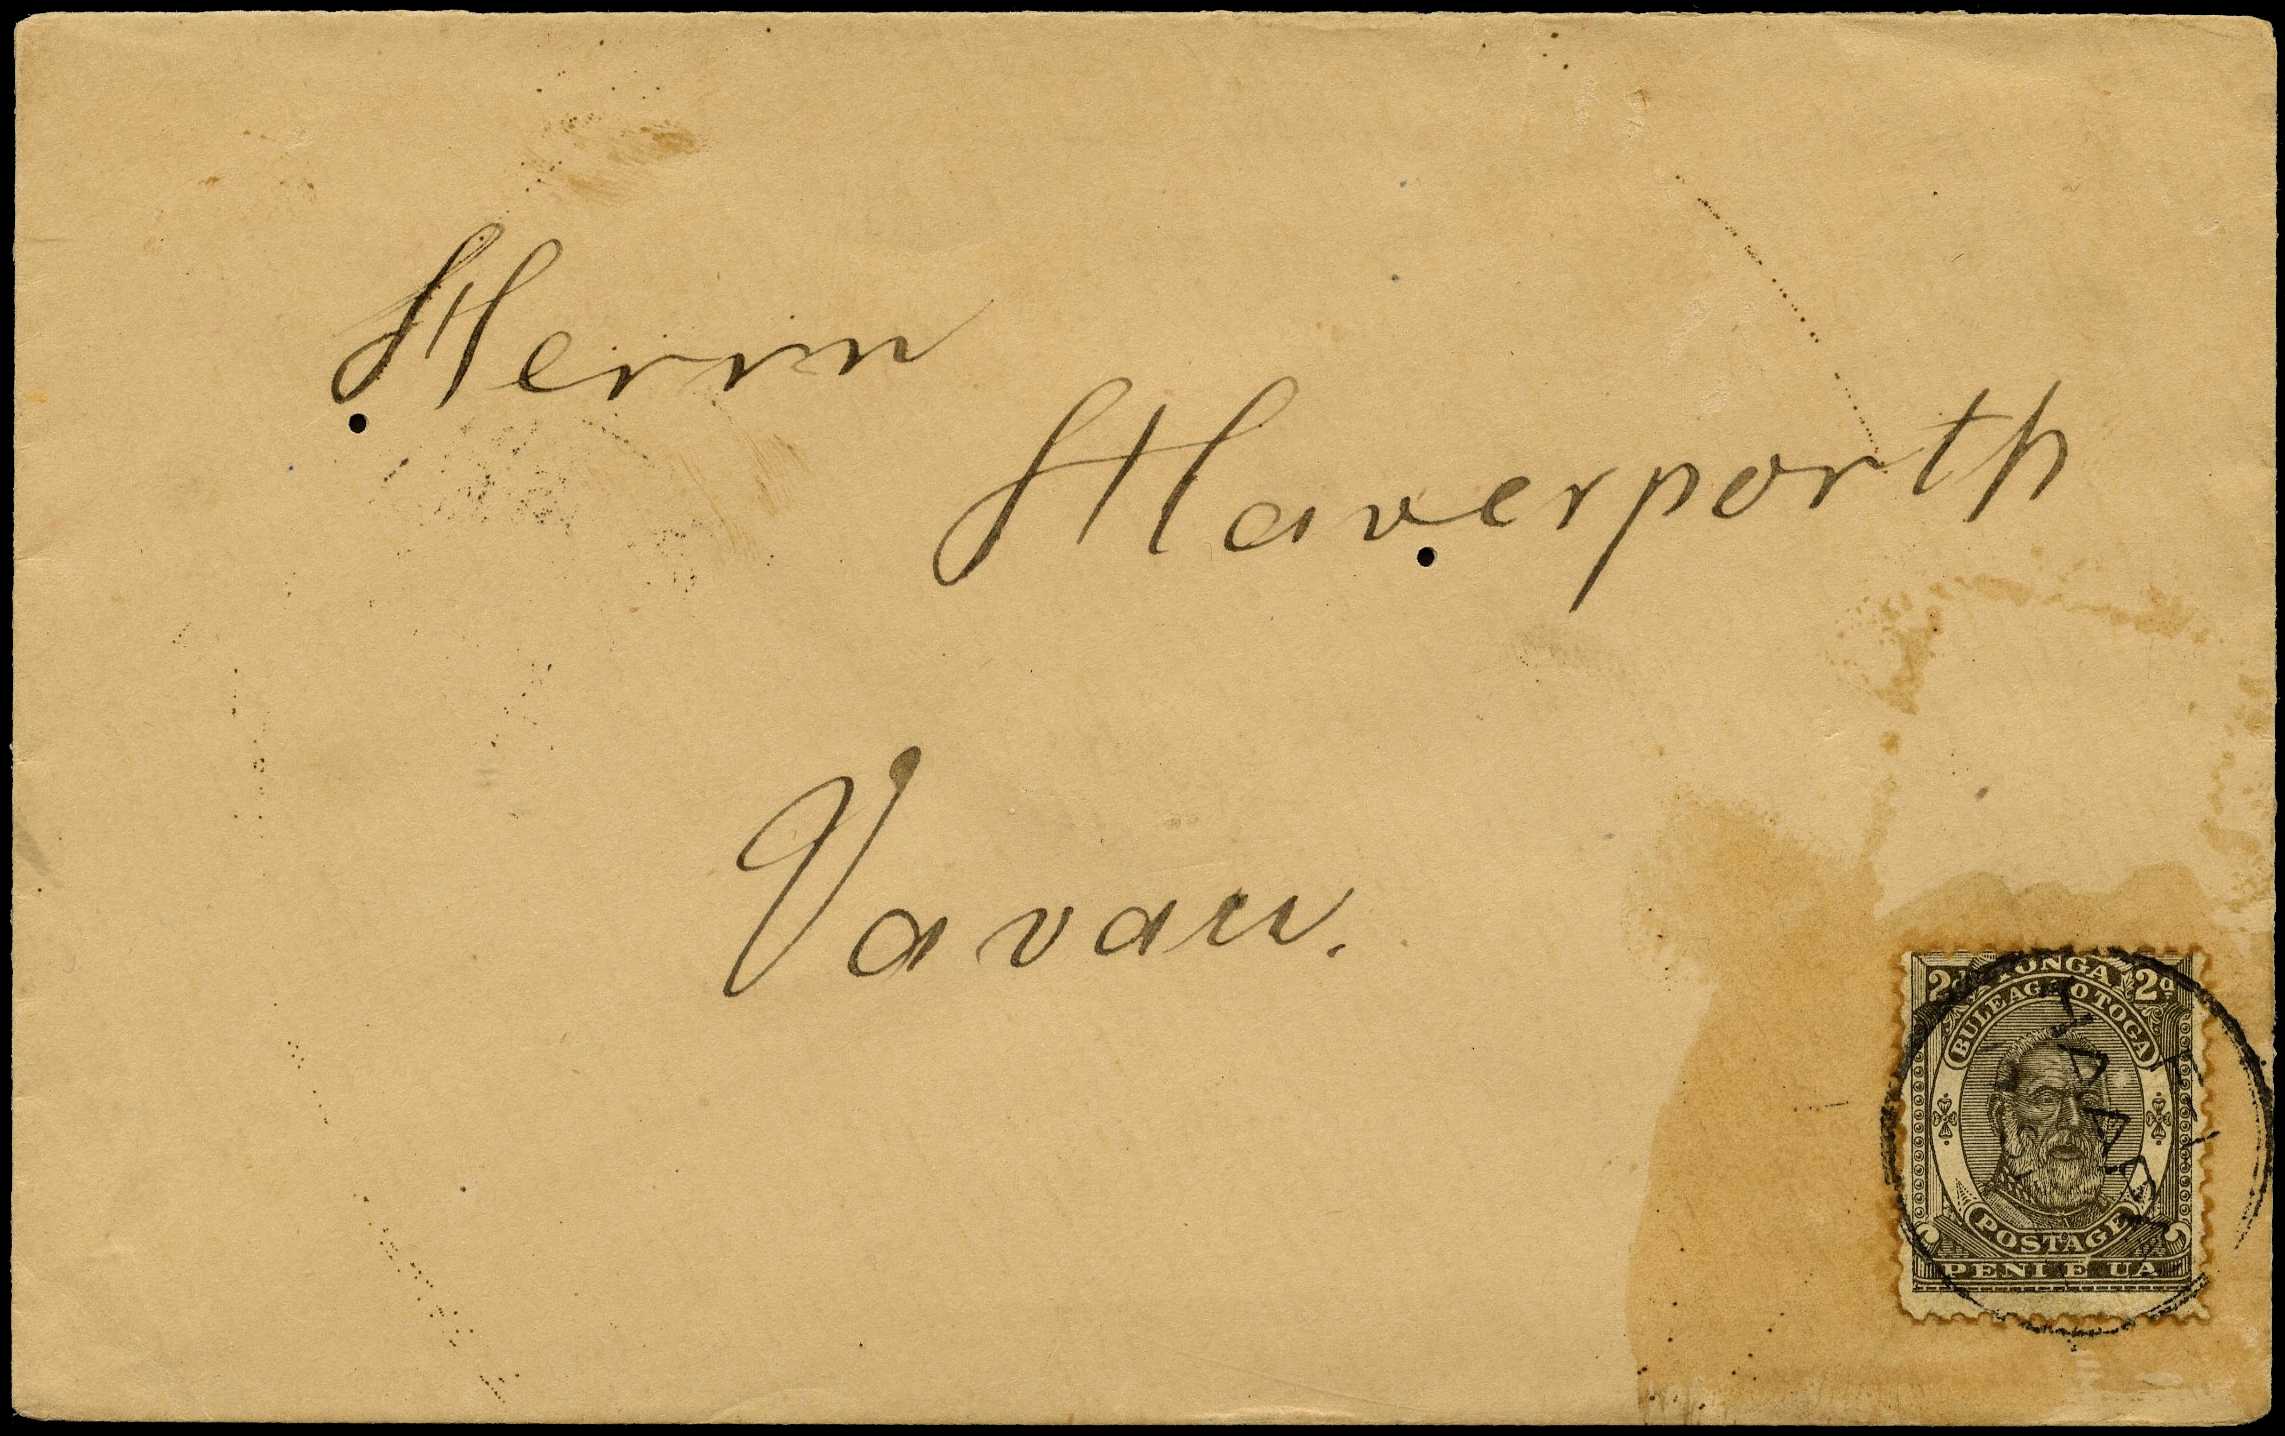 Herrn
Haverporth
Vavau.
2d TONGA 2d
BULEAGA O TOGA
POSTAGE
PENI E UA